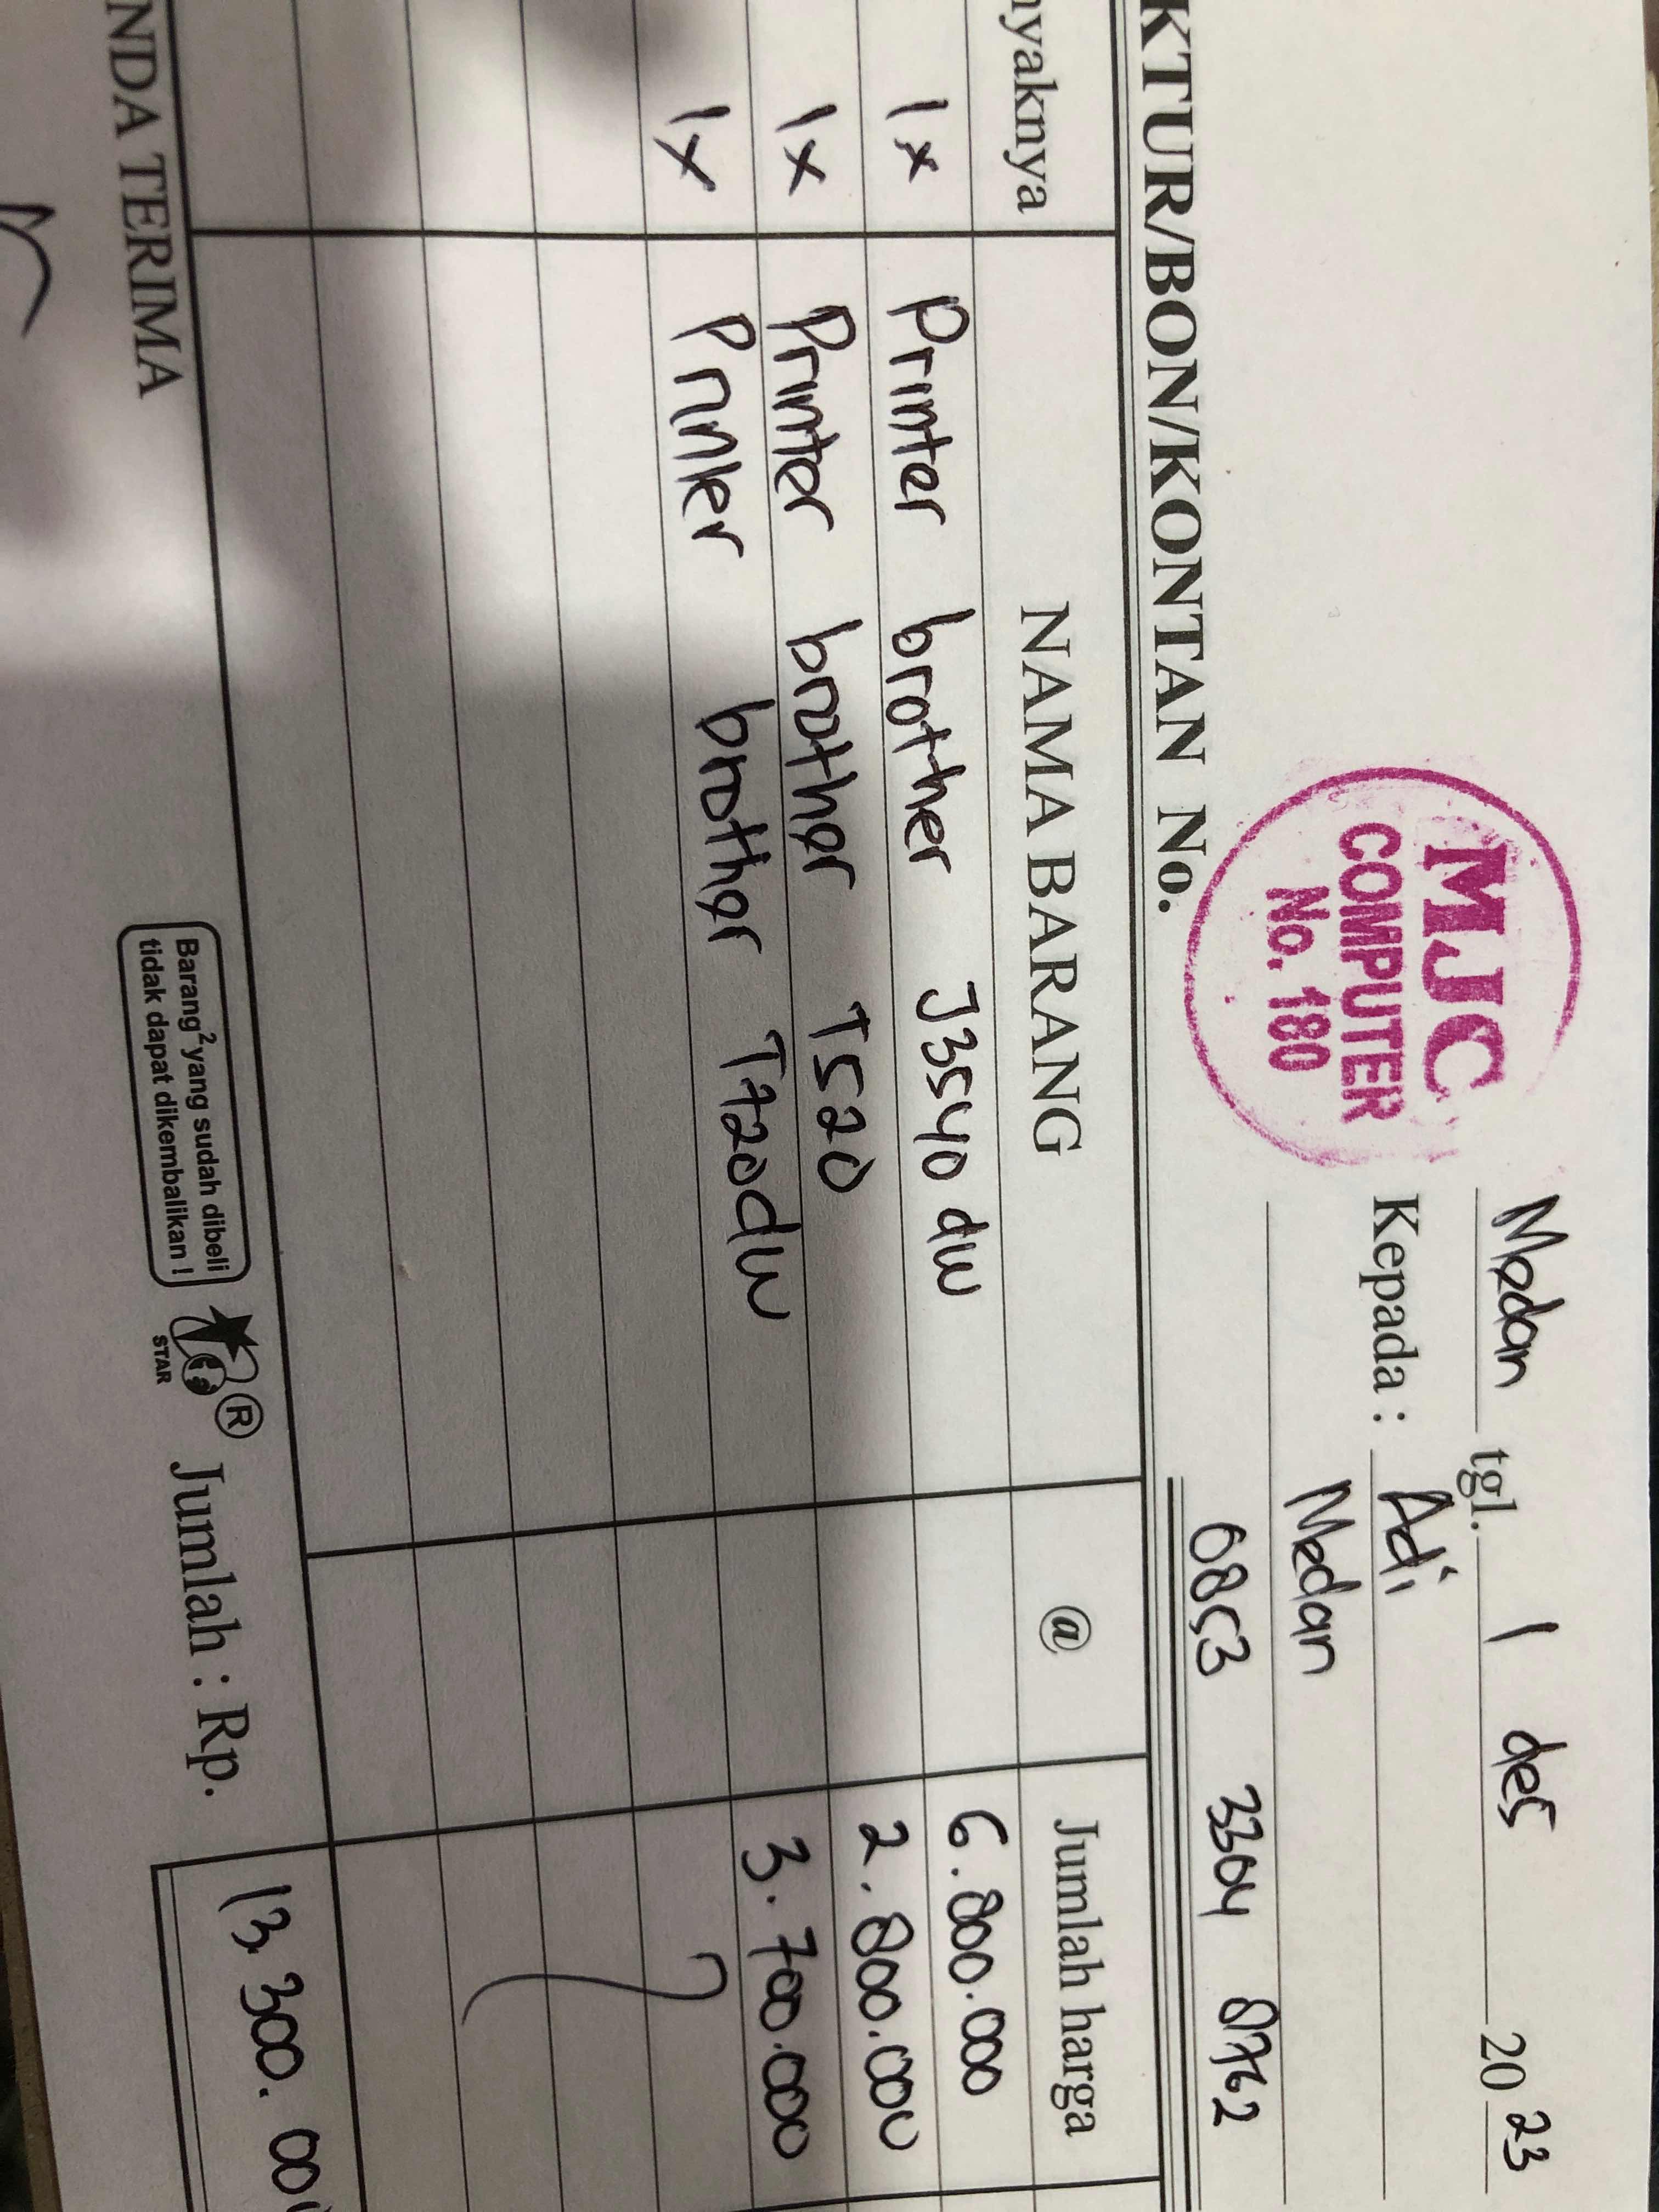 Medan tgl. 1 des 2023
Kepada : Adi
Medan
0853 3304 8762
MJC
COMPUTER
No. 180
KTUR/BON/KONTAN No.
nyaknya NAMA BARANG @ Jumlah harga
1x Printer brother J3540 dw 6.800.000
1x Printer brother T520 2.800.000
1x Printer brother T720dw 3.700.000
NDA TERIMA
Barang² yang sudah dibeli
tidak dapat dikembalikan !
STAR
®
Jumlah : Rp. 13.300.00